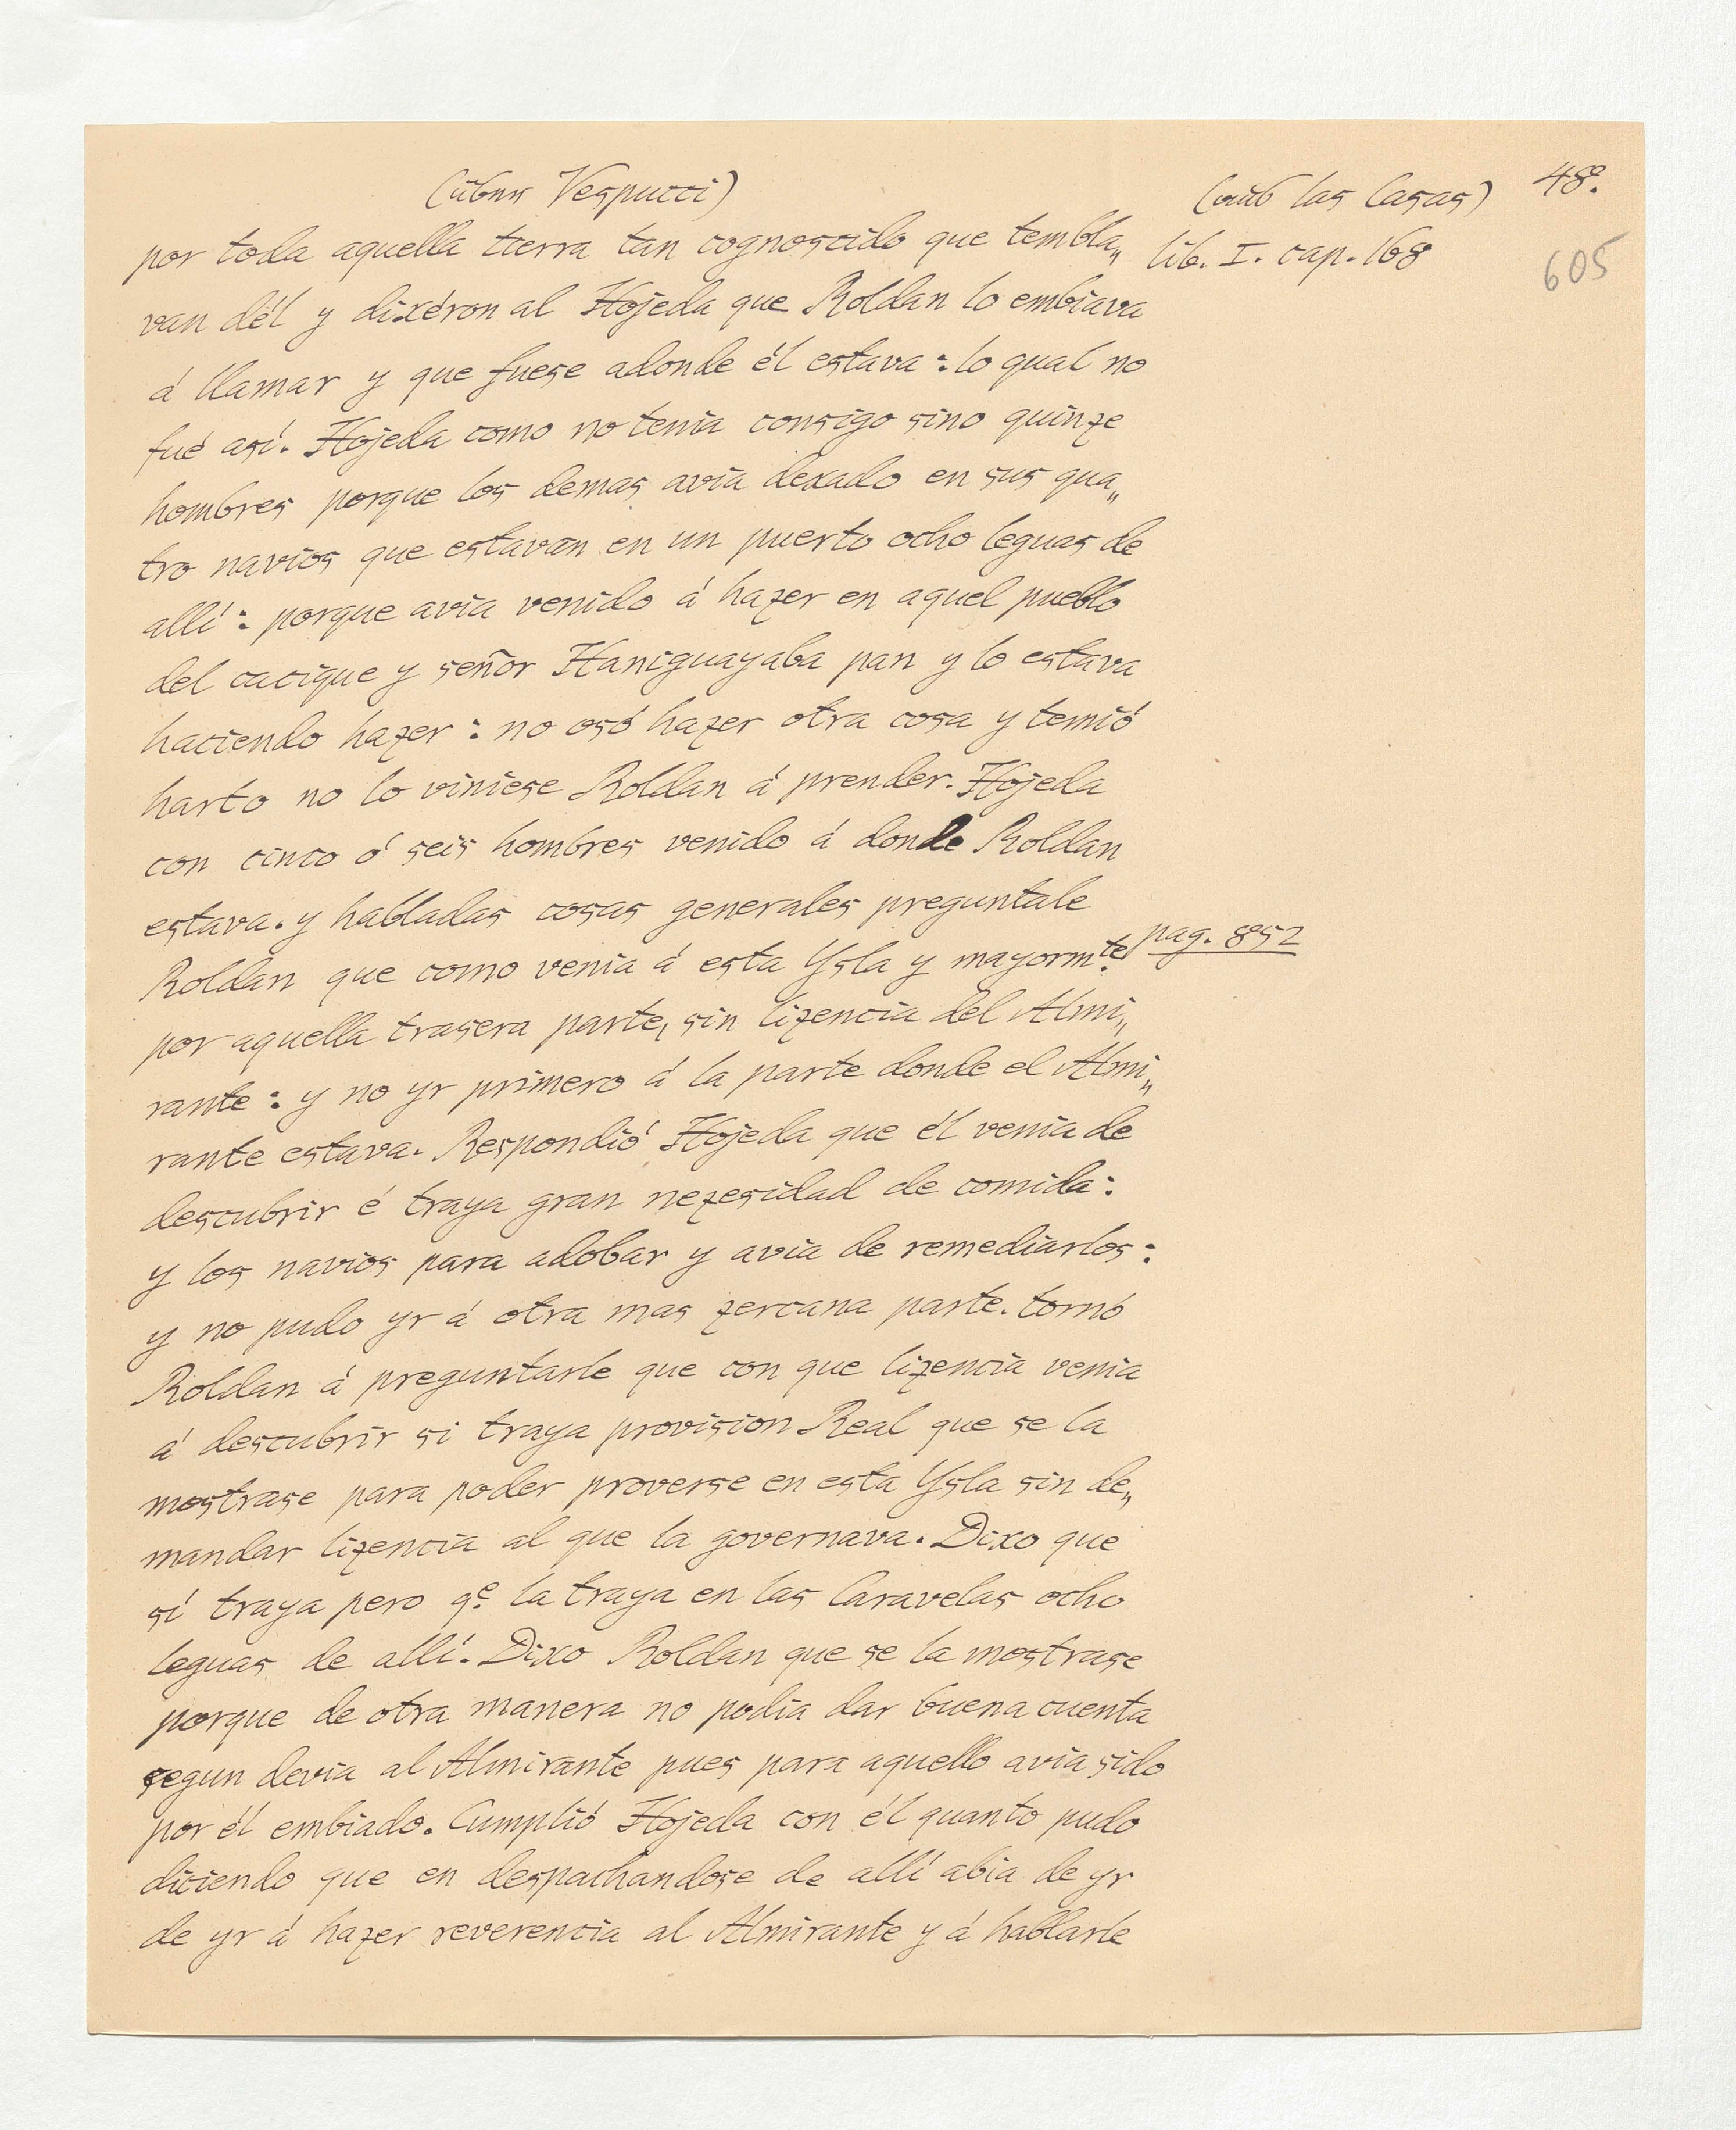 (über Vespucci)
(aus las Casas)
48.
por toda aquella tierra tan cognoscido que tembla„
lib. I. cap. 168
605
van dél y dixéron al Hojeda que Roldan lo embiava
á llamar y que fuese adonde él estava : lo qual no
fué así. Hojeda como no tenia consigo sino quinze
hombres porque los demas avia dexado en sus qua„
tro navios que estavan en un puerto ocho leguas de
allí : porque avia venido á hazer en aquel pueblo
del cacique y señor Haniguayaba pan y lo estava
haciendo hazer : no osó hazer otra cosa y temió
harto no lo viniese Roldan á prender. Hojeda
con cinco ó seis hombres venido á donde Roldan
estava. y habladas cosas generales preguntale
Roldan que como venia á esta Ysla y mayormte.
pag. 852
por aquella trasera parte, sin lizencia del Almi„
rante : y no yr primero á la parte donde el Almi„
rante estava. Respondió Hojeda que él venia de
descubrir é traya gran nezesidad de comida :
y los navios para adobar y avia de remediarlos :
y no pudo yr á otra mas zercana parte. tornó
Roldan á preguntarle que con que lizencia venia
á descubrir si traya provision Real que se la
mostrase para poder proverse en esta Ysla sin de„
mandar lizencia al que la governava. Dixo que
sí traya pero qe. la traya en las Caravelas ocho
leguas de allí. Dixo Roldan que se la mostrase
porque de otra manera no podia dar buena cuenta
segun devia al Almirante pues para aquello avia sido
por él embiado. Cumplió Hojeda con él quanto pudo
diciendo que en despachandose de allí abia de yr
de yr á hazer reverencia al Almirante y á hablarle